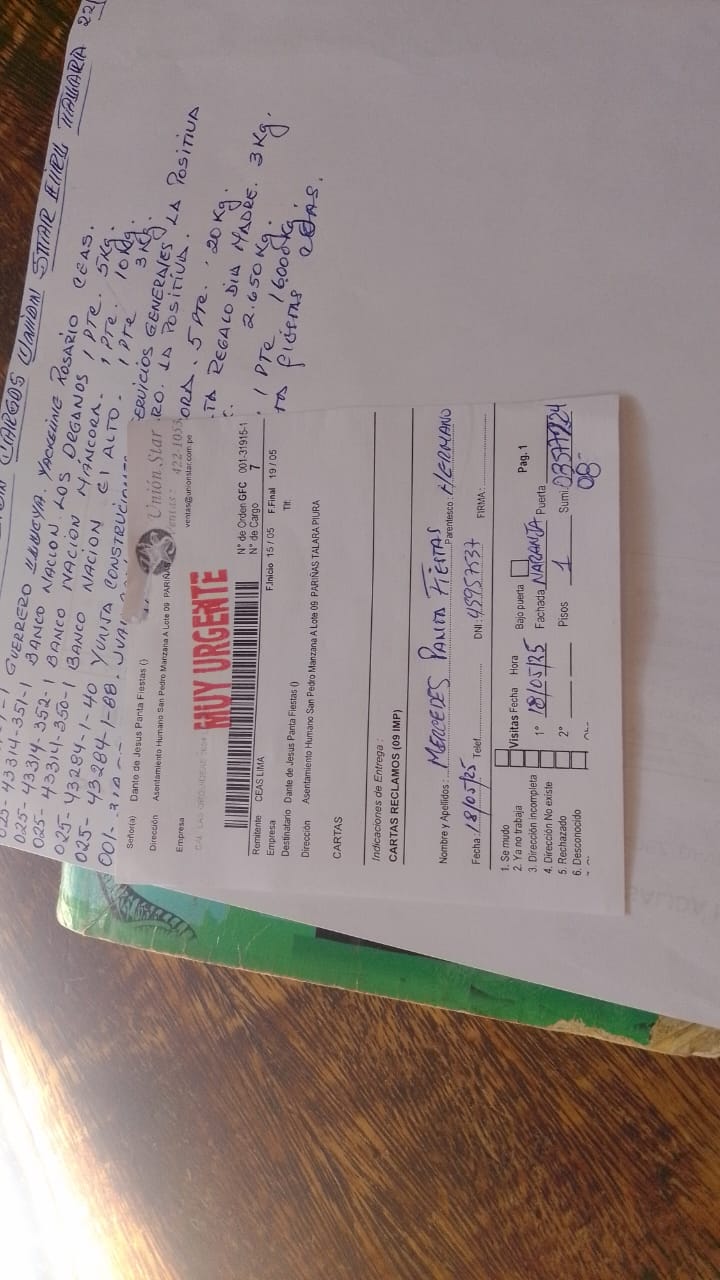 CARGOS UNION STAR EIRL TALARA 22
GUERRERO
025-43314-351-1 BANCO NACION. LOS ORGANOS 1 PTE. 5Kg.
025-43314-352-1 BANCO NACION MÁNCORA. 1 PTE. 10Kg.
025-43314-350-1 BANCO NACION El ALTO. 1 PTE 3Kg.
025-43284-1-40 YUNTA CONSTRUCION
025-43284-1-88.
001-
YACKELINE ROSARIO CEAS.
SERVICIOS GENERALES LA POSITIVA
RO. LA POSITIVA.
ORA. 5 PTE. 20Kg.
TA REGALO DIA MADRE. 3Kg.
1 PTE 2.650Kg.
16000Kg.
TA FIESTAS CEAS.
Unión Star
Ventas: 422-1053
ventas@unionstar.com.pe
Señor(a) Dante de Jesus Panta Fiestas ()
Dirección Asentamiento Humano San Pedro Manzana A Lote 09 PARIÑAS
Empresa
MUY URGENTE
N° de Orden GFC 001-31915-1
N° de Cargo 7
Remitente CEAS LIMA F.Inicio 15 / 05 F.Final 19 / 05
Empresa Tlf:
Destinatario Dante de Jesus Panta Fiestas ()
Dirección Asentamiento Humano San Pedro Manzana A Lote 09 PARIÑAS TALARA PIURA
CARTAS
Indicaciones de Entrega :
CARTAS RECLAMOS (09 IMP)
Nombre y Apellidos: MERCEDES PANTA FIESTAS Parentesco: HERMANO
Fecha: 18/05/25 Telef. DNI: 43957537 FIRMA:
Visitas Fecha Hora Bajo puerta Pag. 1
1. Se mudo
2. Ya no trabaja 1° 18/05/25 Fachada NARANJA Puerta
3. Dirección incompleta
4. Dirección No existe 2° Pisos 1 Sumi.
5. Rechazado 08-
6. Desconocido